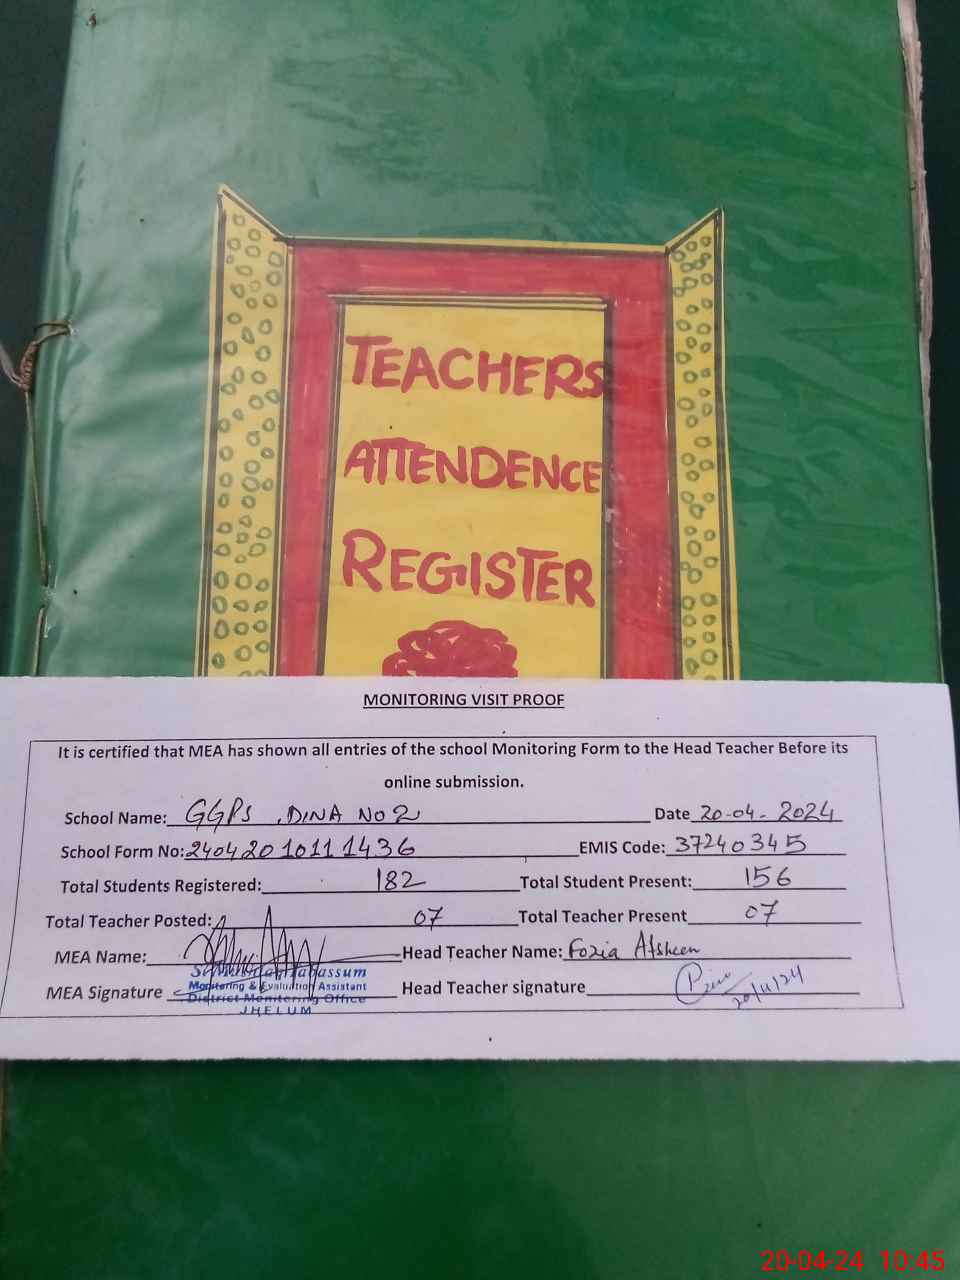 TEACHERS
ATTENDENCE
REGISTER
MONITORING VISIT PROOF
It is certified that MEA has shown all entries of the school Monitoring Form to the Head Teacher Before its
online submission.
School Name: GGPS , DINA NO 2 Date 20-04-2024
School Form No: 24042010111436 EMIS Code: 37240345
Total Students Registered: 182 Total Student Present: 156
Total Teacher Posted: 07 Total Teacher Present 07
MEA Name: Head Teacher Name: Fozia Afsheen
Tabassum
Monitoring & Evaluation Assistant
MEA Signature Head Teacher signature
District Monitoring Office
JHELUM
20-04-24 10:45